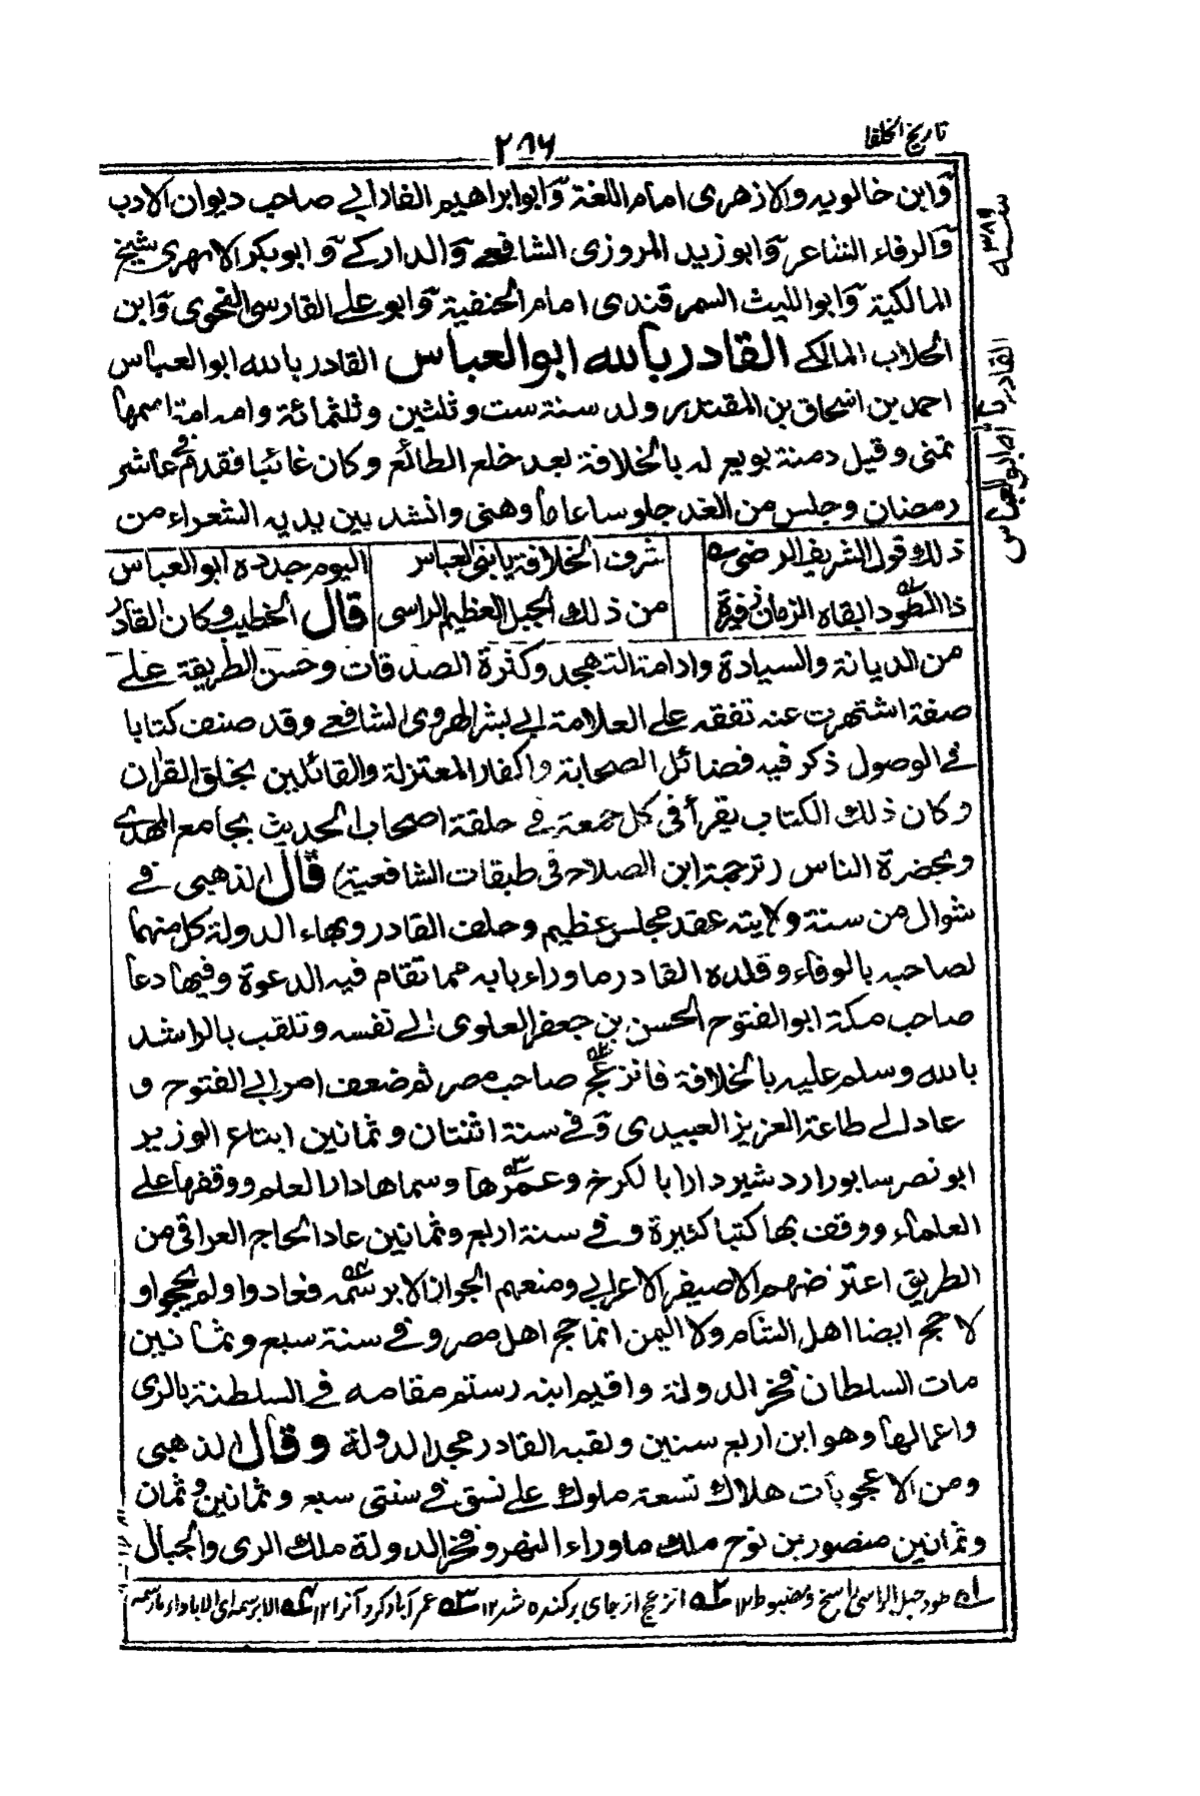 تاريخ الخلفا
٢٨٦
وابن خالويه والازهرى امام اللغة وابو ابراهيم الفارابي صاحب ديوان الادب
والرفاء الشاعر وابو زيد المروزى الشافعي والداركي وابو بكر الابهرى شيخ
المالكية وابو الليث السمرقندى امام الحنفية وابو علي الفارسي النحوى وابن
الجلاب المالكي القادر بالله ابو العباس القادر بالله ابو العباس
احمد بن اسحاق بن المقتدر ولد سنة ست وثلثين وثلثمائة وامه امة اسمها
تمنى وقيل دمنة بويع له بالخلافة بعد خلع الطائع وكان غائبا فقدم في عاشر
رمضان وجلس من الغد جلوسا عاما وهنى وانشد بين يديه الشعراء من
ذلك قول الشريف الرضى شرف الخلافة يا بنى العباس اليوم جدده ابو العباس
ذا الطود ابقاه الزمان ذخيرة من ذلك الجبل العظيم الراسى قال الخطيب وكان القادر
من الديانة والسيادة وادامة التهجد وكثرة الصدقات وحسن الطريقة علے
صفة اشتهرت عنه تفقه علے العلامة ابي بشر الهروى الشافعے وقد صنف كتابا
فے الوصول ذكر فيه فضائل الصحابة واكفار المعتزلة والقائلين بخلق القران
وكان ذلك الكتاب يقرأ فى كل جمعة فے حلقة اصحاب الحديث بجامع المهدے
وبحضرة الناس (ترجمة ابن الصلاح فى طبقات الشافعية) قال الذهبى فے
شوال من سنة ولايته عقد مجلس عظيم وحلف القادر وبهاء الدولة كل منهما
لصاحبه بالوفاء وقلده القادر ما وراء بابه مما تقام فيه الدعوة وفيها دعا
صاحب مكة ابو الفتوح الحسن بن جعفر العلوى الے نفسه وتلقب بالراشد
بالله وسلم عليه بالخلافة فانزعج صاحب مصر ثم ضعف امر ابي الفتوح و
عاد الے طاعة العزيز العبيدى وفے سنة اثنتان وثمانين ابتاع الوزير
ابو نصر سابور اردشير دارا بالكرخ وعمرها وسماها دار العلم ووقفها علے
العلماء ووقف بها كتبا كثيرة وفے سنة اربع وثمانين عاد الحاج العراقى من
الطريق اعترضهم الاصيفر الاعرابي ومنعهم الجواز الا برسمه فعادوا ولم يحجوا و
لا حج ايضا اهل الشام ولا اليمن انما حج اهل مصر وفے سنة سبع وثمانين
مات السلطان فخر الدولة واقيم ابنه رستم مقامه فے السلطنة بالرى
واعمالها وهو ابن اربع سنين ولقبه القادر مجد الدولة وقال الذهبى
ومن الاعجوبات هلاك تسعة ملوك علے نسق فے سنتى سبع وثمانين وثمان
وثمانين منصور بن نوح ملك ما وراء النهر وفخر الدولة ملك الرى والجبال
طود جبل الراسى راسخ ومضبوط ١٢ ٢ انزعج از جاى بركنده شد ١٢ ٣ عمر آباد كرد آنرا ١٢ ٤ الا برسمه اى الا باداء
القادر بالله ابو العباس